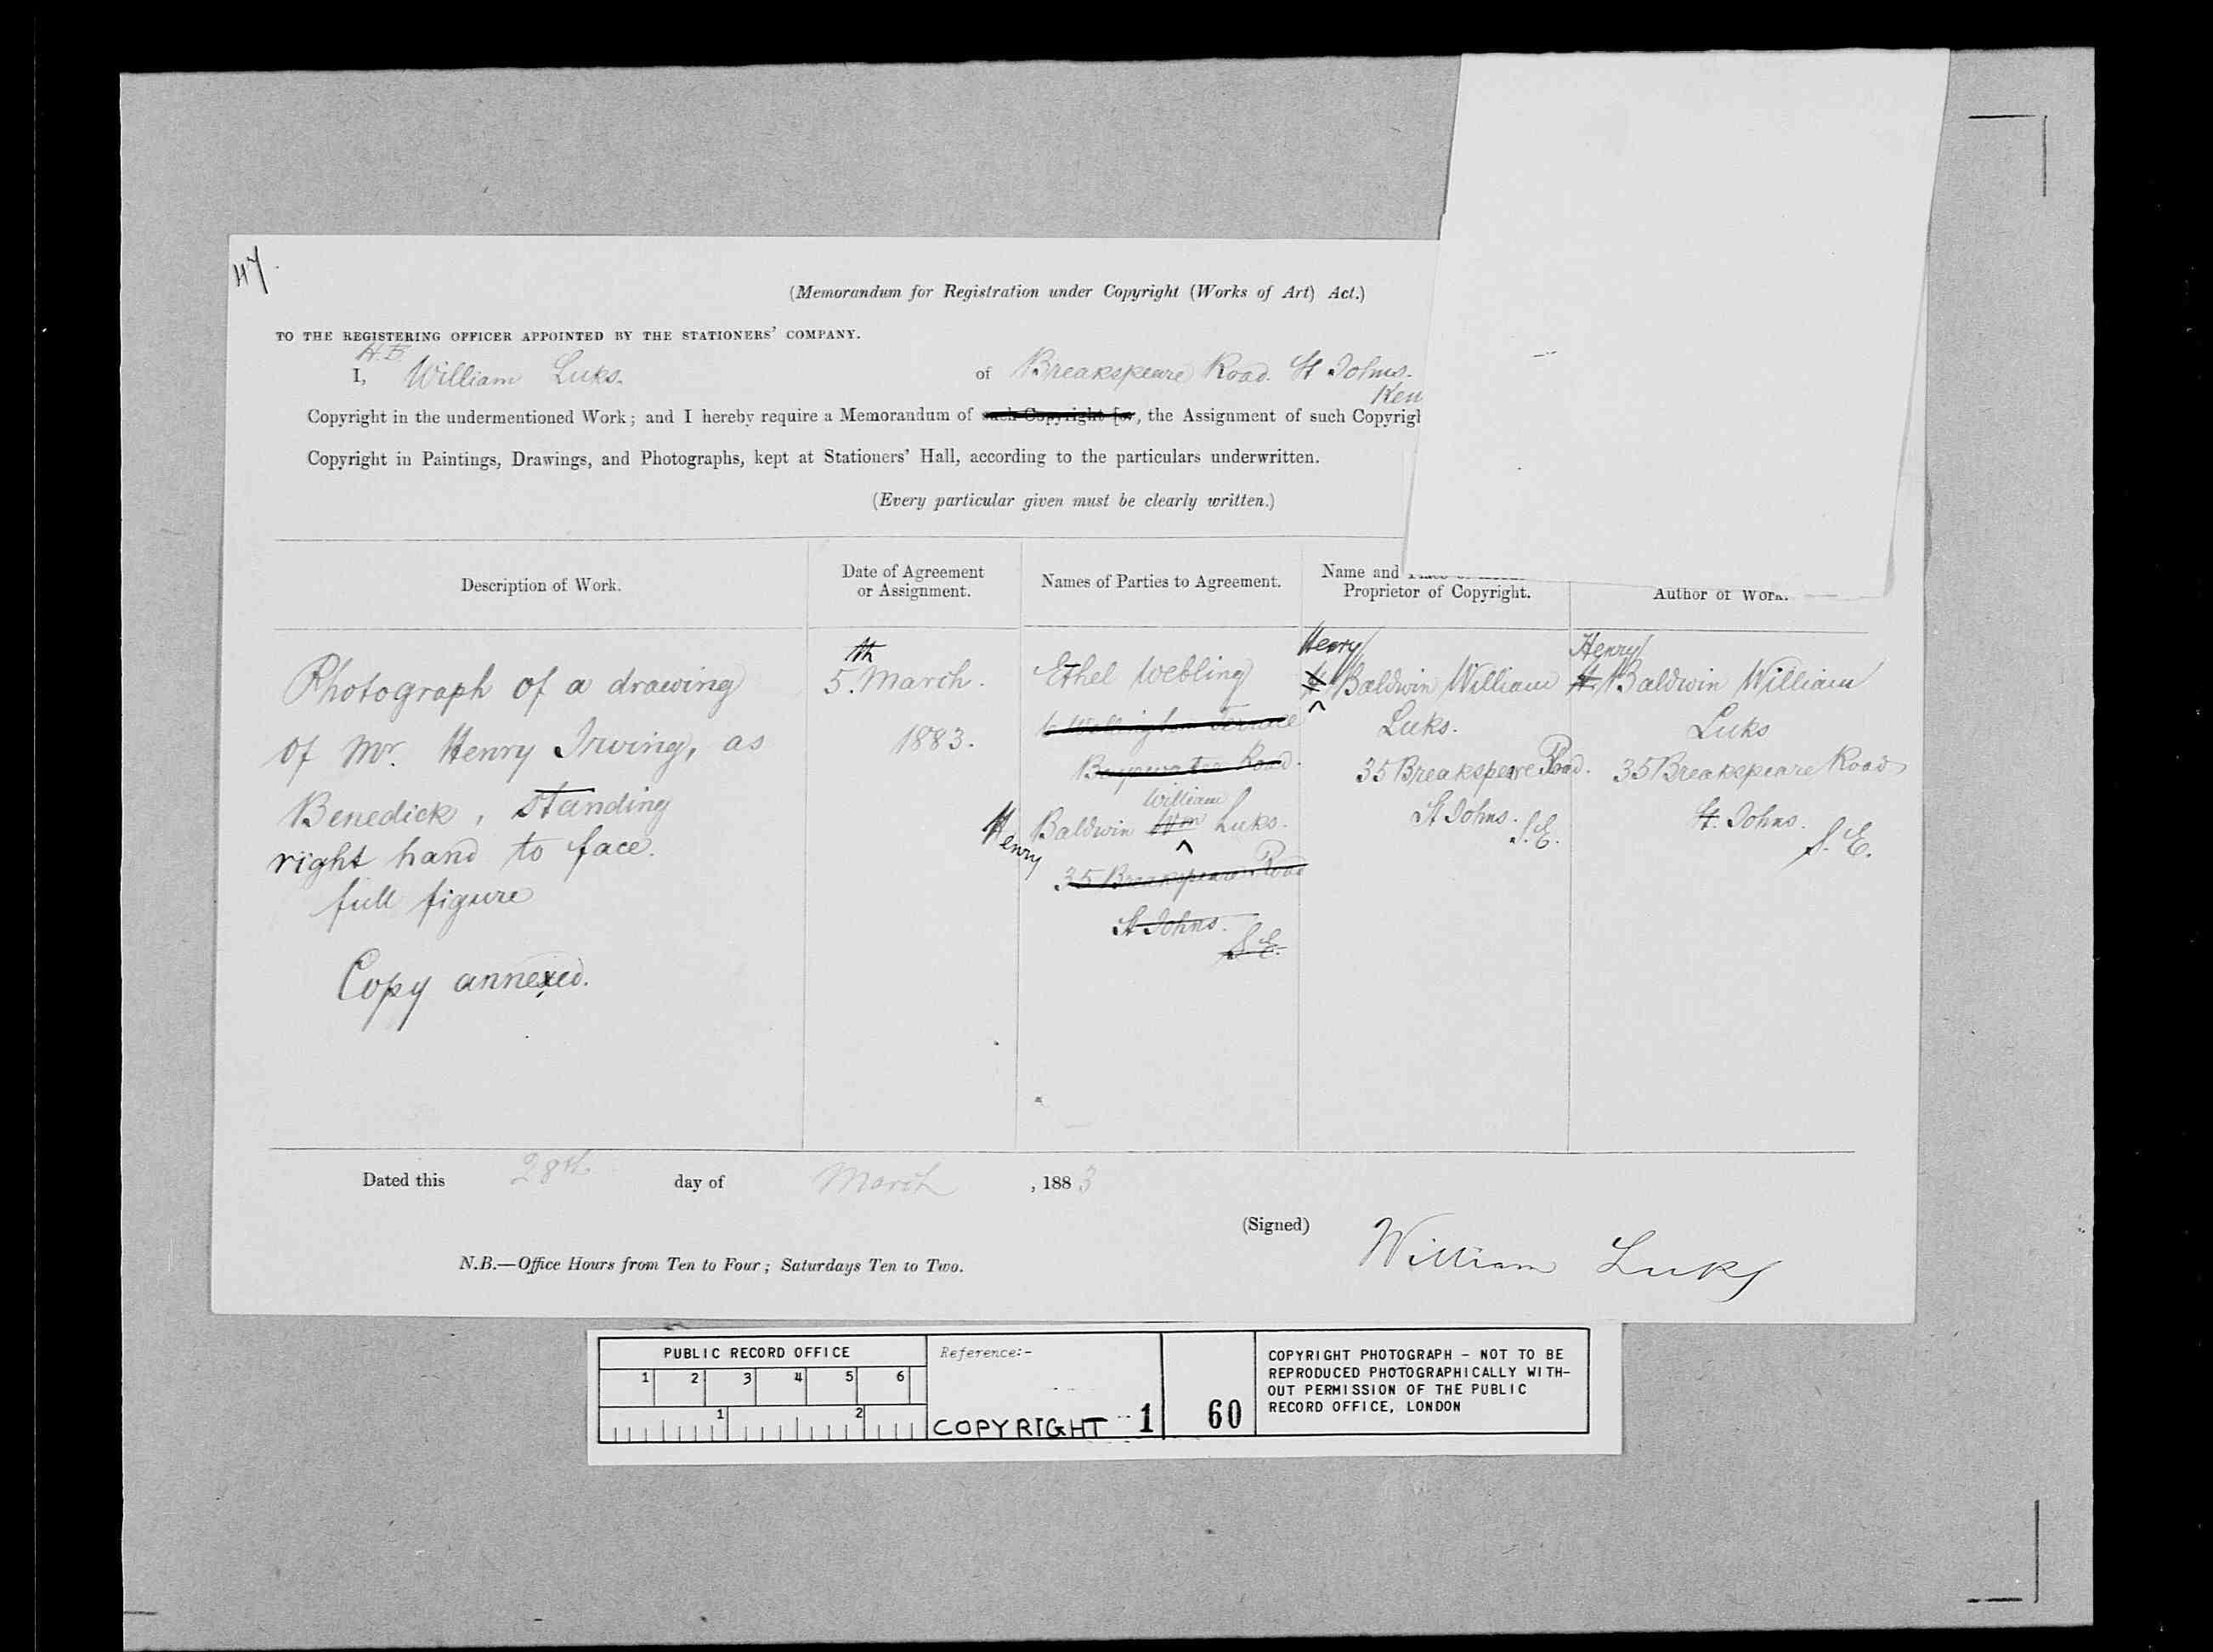 47.
(Memorandum for Registration under Copyright (Works of Art) Act.)
TO THE REGISTERING OFFICER APPOINTED BY THE STATIONERS' COMPANY.
H.B.
I, William Luks. of Breakspeare Road. St Johns.
Ken
Copyright in the undermentioned Work; and I hereby require a Memorandum of such Copyright [or, the Assignment of such Copyrigh
Copyright in Paintings, Drawings, and Photographs, kept at Stationers' Hall, according to the particulars underwritten.
(Every particular given must be clearly written.)
Description of Work.
Date of Agreement
or Assignment.
Names of Parties to Agreement.
Name and
Proprietor of Copyright.
Author of Work.
Photograph of a drawing
of Mr. Henry Irving, as
Benedick, standing
right hand to face.
full figure
Copy annexed.
th
5. March.
1883.
Ethel Webling
6 Wellington Terrace
Bayswater Road.
William
Henry Baldwin Wm Luks.
35 Breakspeare Road
St Johns.
S.E.
Henry
H Baldwin William
Luks.
35 Breakspeare Road.
St Johns.
S.E.
Henry
H. Baldwin William
Luks
35 Breakspeare Road
St. Johns.
S.E.
Dated this 28th day of March, 1883
(Signed) William Luks
N.B.—Office Hours from Ten to Four; Saturdays Ten to Two.
PUBLIC RECORD OFFICE
1 2 3 4 5 6
1 2
Reference:-
COPYRIGHT 1 60
COPYRIGHT PHOTOGRAPH - NOT TO BE
REPRODUCED PHOTOGRAPHICALLY WITH-
OUT PERMISSION OF THE PUBLIC
RECORD OFFICE, LONDON